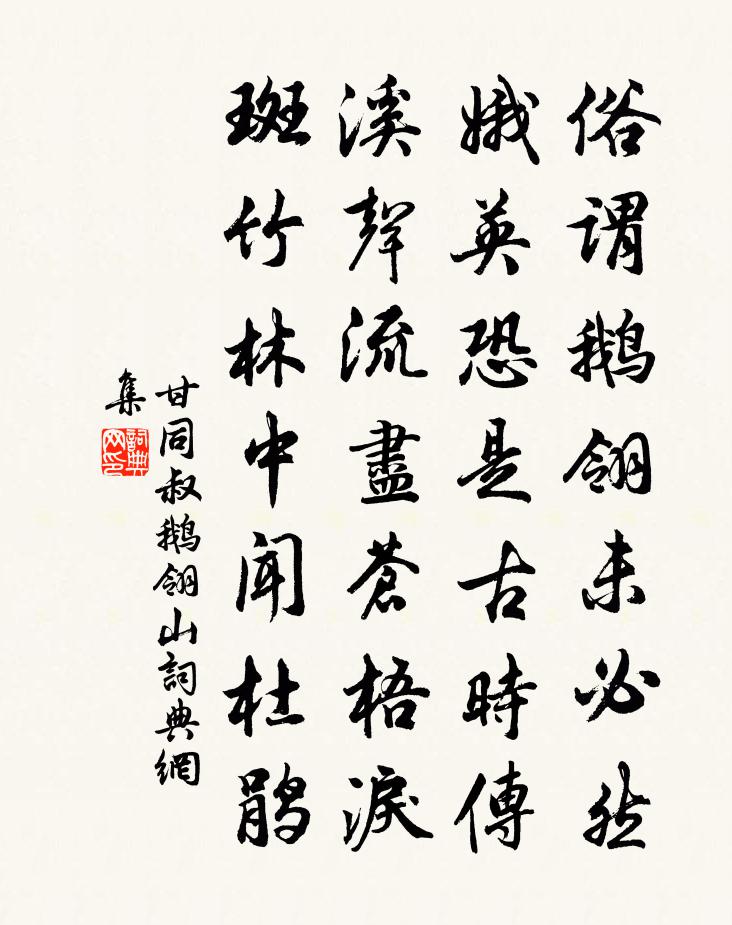 俗谓鹅翎未必然
娥英恐是古時傳
溪聲流盡蒼梧淚
斑竹林中闻杜鹃
甘同叔鹅翎山詞典網
集
詞典
网印